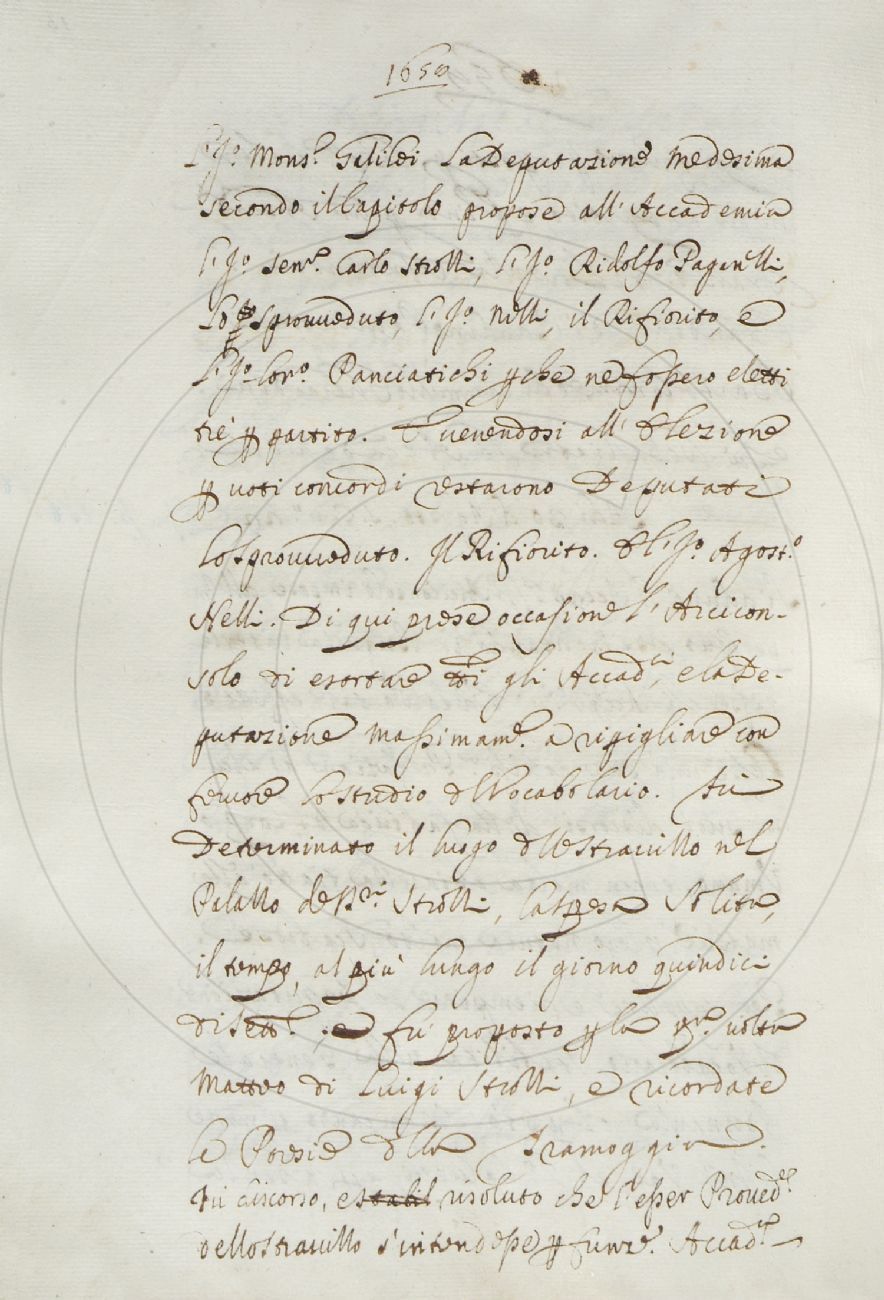 1658
Il S.r Mons.r Galilei. La Deputazione medesima
secondo il Capitolo propose all' Accademia
il S.r Sen.re Carlo Strozzi, il S.r Ridolfo Paganelli,
lo Sprovveduto, il S.r Nelli, il Rifiorito, e
il S.r Lor.o Panciatichi p che ne fossero eletti
trè p partito. E venendosi all' Elezione
p voti concordi restarono Deputati
lo Sprovveduto. Il Rifiorito. E l' S.r Agost.o
Nelli. Di qui prese occasione l' Arcicon-
solo di esortare tt.i gli Accad.ci, e la De-
putazione massimam.e a ripigliare con
fervore lo studio del Vocabolario. Fù
determinato il luogo dello Stravizzo nel
Palazzo de SS.ri Strozzi, la spesa solita,
il tempo, al più lungo il giorno quindici
di Sett.e, e fu proposto p la p.a volta
Matteo di Luigi Strozzi, e ricordate
le Poesie della Tramoggia.
Fù discorso, e stabil risoluto che l' esser Proved.re
dello Stravizzo s' intendesse p funz.e Accad.ca